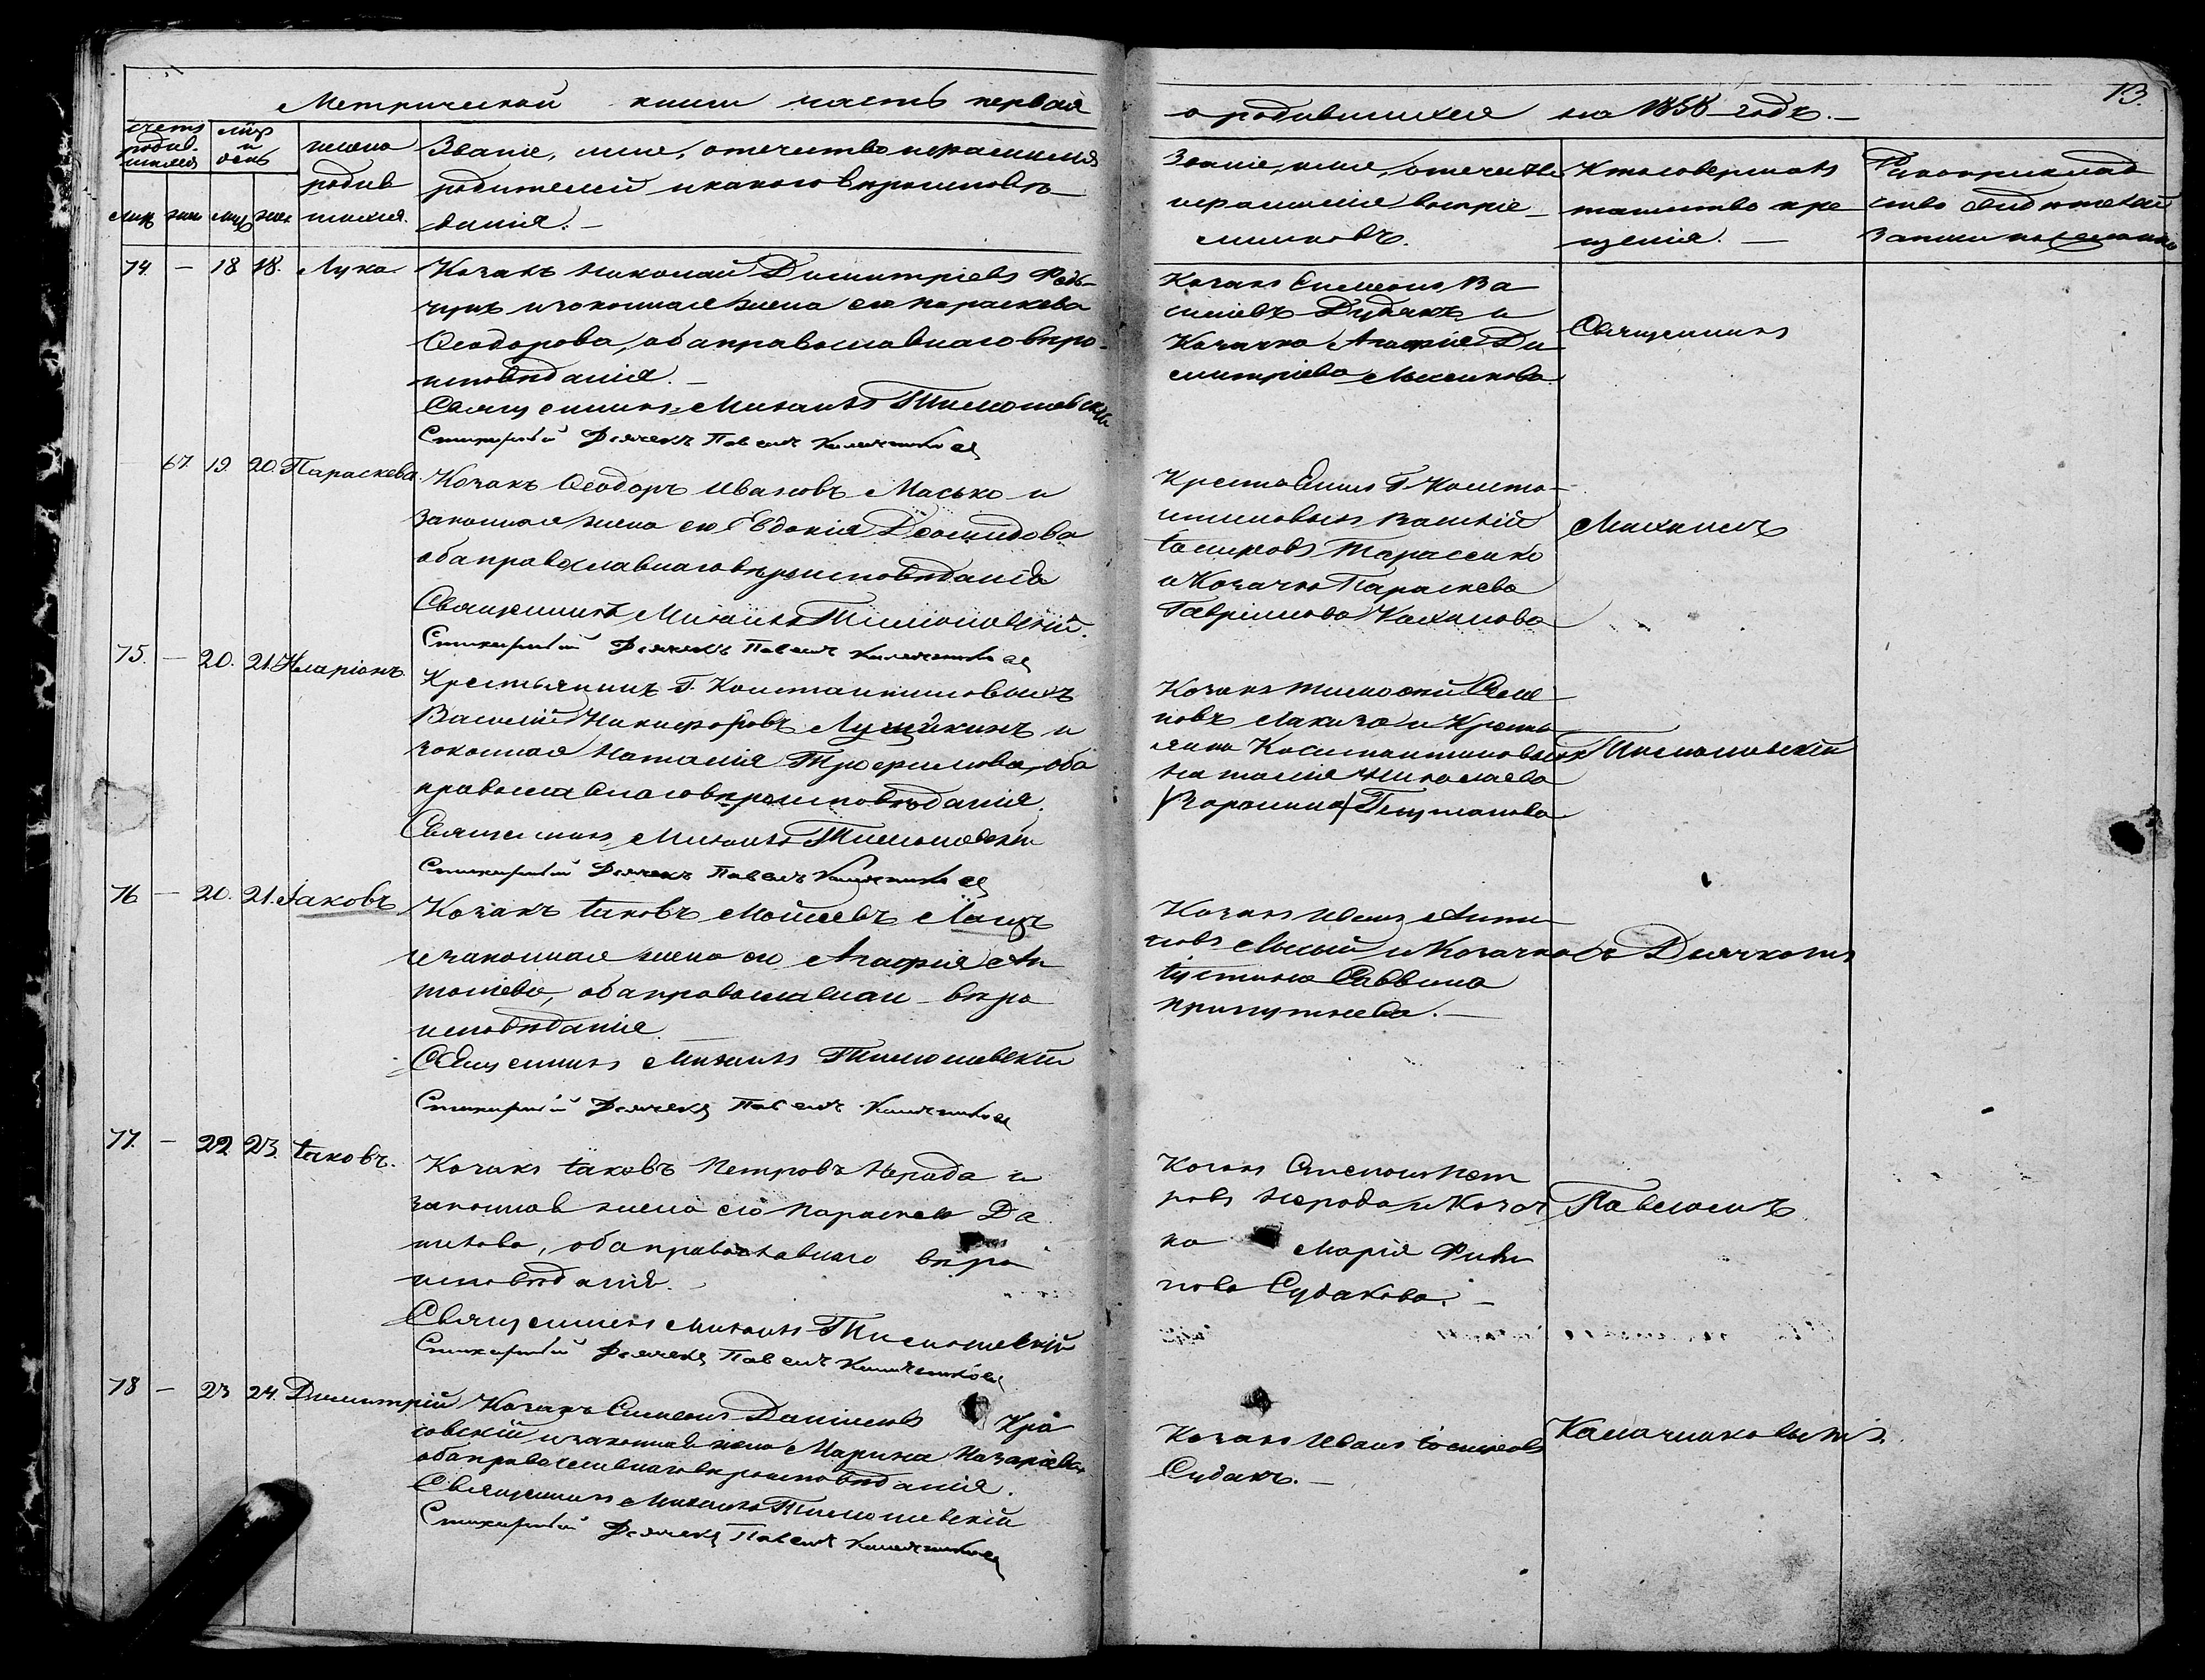 Метрической книги часть первая
о родившихся на 1858 годъ.
13.
счетъ родив-шихся
м-цъ и день
имена родив шихся.
Званіе, имя, отечество и фамилія
родителей и какого вѣроисповѣ-
данія.
Званіе, имя, отечество
и фамилія воспріе-
мниковъ.
Кто совершалъ
таинство кре
щенія.
Рукоприклад
ство свидѣтелей
записи по желанію
74. – 18 18. Лука
Козакъ Николай Димитріевъ Федь-
чунъ и законная жена его Параскева
Ѳеодорова, оба православнаго вѣро-
исповѣданія.
Священникъ Михаилъ Тимошевскій
Стихарный Дьячекъ Павелъ
Козакъ Симеонъ Ва
силіевъ Дудакъ и
Козачка Агафія Ди
митріева
Священникъ
67. 19. 20. Параскева.
Козакъ Ѳеодоръ Ивановъ Масько и
законная жена его Евдокія Діомидова
оба православнаго вѣроисповѣданія
Священникъ Михаилъ Тимошевскій.
Стихарный Дьячекъ Павелъ
Крестьянинъ Г. Конста-
нтиновыхъ Василій
Іосифовъ Тарасенко
и Козачка Параскева
Гавріилова Каханова
Михаилъ
75. – 20. 21. Иларіонъ.
Крестьянинъ Г. Константиновыхъ
Василій Никифоровъ и
законная Наталія Трофимова, оба
православнаго вѣроисповѣданія.
Священникъ Михаилъ Тимошевскій
Стихарный Дьячекъ Павелъ
Козакъ Тимофей Семе
новъ Лакиза и Кресть
янка Константиновыхъ
Наталія Николаева
Тимошевскій
76 – 20. 21. Іаковъ
Козакъ Іаковъ Мойсеевъ
и законная жена его Агафія Ан
тоніева, оба православнаго вѣро
исповѣданія.
Священникъ Михаилъ Тимошевскій
Стихарный Дьячекъ Павелъ
Козакъ Иванъ Анти
повъ и Козачка
Іустина Саввина
съ Дьячкомъ
77. – 22 23. Іаковъ.
Козакъ Іаковъ Петровъ Нерода и
законная жена его Параскева Да
нилова, оба православнаго вѣро
исповѣданія.
Священникъ Михаилъ Тимошевскій
Стихарный Дьячекъ Павелъ
Козакъ Симеонъ Пет
ровъ Нерода и Козач
ка Марія Филип
пова Судакова.
Павломъ
78 – 23 24. Димитрій
Козакъ Симеонъ Даніиловъ Кра
совскій и законная жена Марина Назаріева
оба православнаго вѣроисповѣданія.
Священникъ Михаилъ Тимошевскій
Стихарный Дьячекъ Павелъ
Козакъ Иванъ Іосифовъ
Судакъ.
Калачниковымъ.